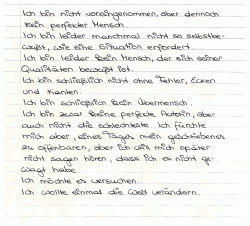 Ich bin nicht voreingenommen, aber dennoch
kein perfekter Mensch.
Ich bin leider manchmal nicht so selbstbe-
wußt, wie eine Situation erfordert.
Ich bin leider kein Mensch, der sich seiner
Qualitäten bewußt ist.
Ich bin schließlich nicht ohne Fehler, Ecken
und Kanten.
Ich bin schließlich kein Übermensch.
Ich bin zwar keine perfekte Autorin, aber
auch nicht die schlechteste. Ich fürchte
mich aber, eines Tages mein geschriebenes
zu offenbaren, aber ich will mich später
nicht sagen hören, dass ich es nicht ge-
wagt habe.
Ich möchte es versuchen.
Ich wollte einmal die Welt verändern.